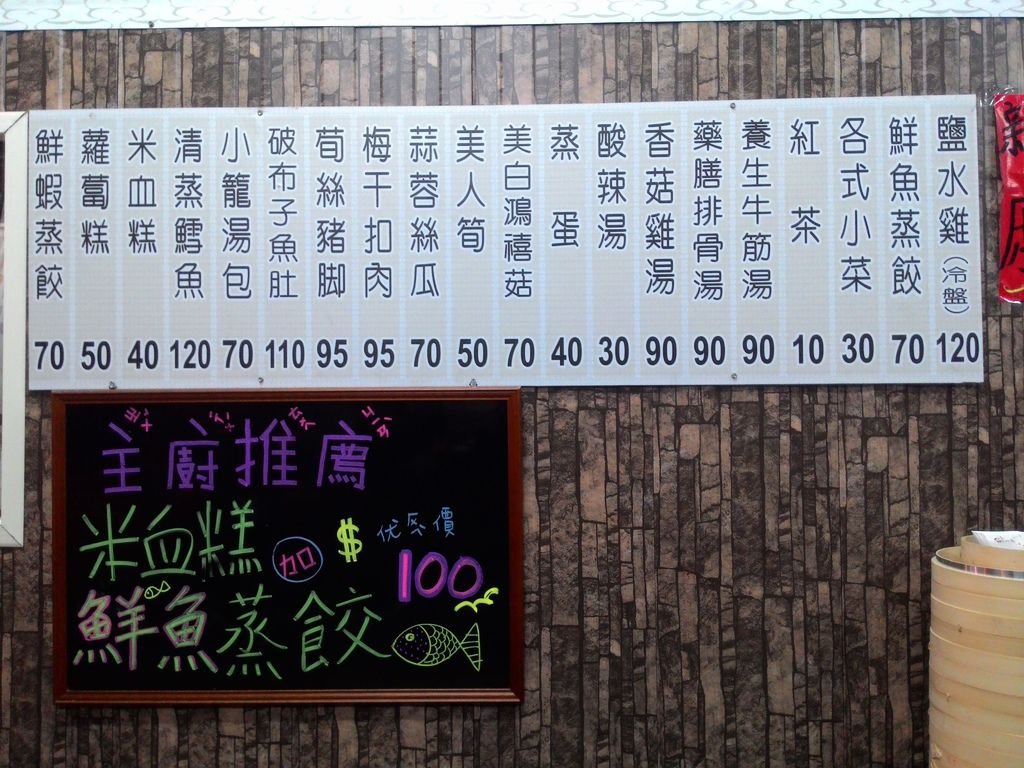 鹽水雞(冷盤) 120
鮮魚蒸餃 70
各式小菜 30
紅茶 10
養生牛筋湯 90
藥膳排骨湯 90
香菇雞湯 90
酸辣湯 30
蒸蛋 40
美白鴻禧菇 70
美人筍 50
蒜蓉絲瓜 70
梅干扣肉 95
荀絲豬脚 95
破布子魚肚 110
小籠湯包 70
清蒸鱈魚 120
米血糕 40
蘿蔔糕 50
鮮蝦蒸餃 70
主廚推薦
米血糕 加 $ 优惠價
鮮魚蒸餃 100